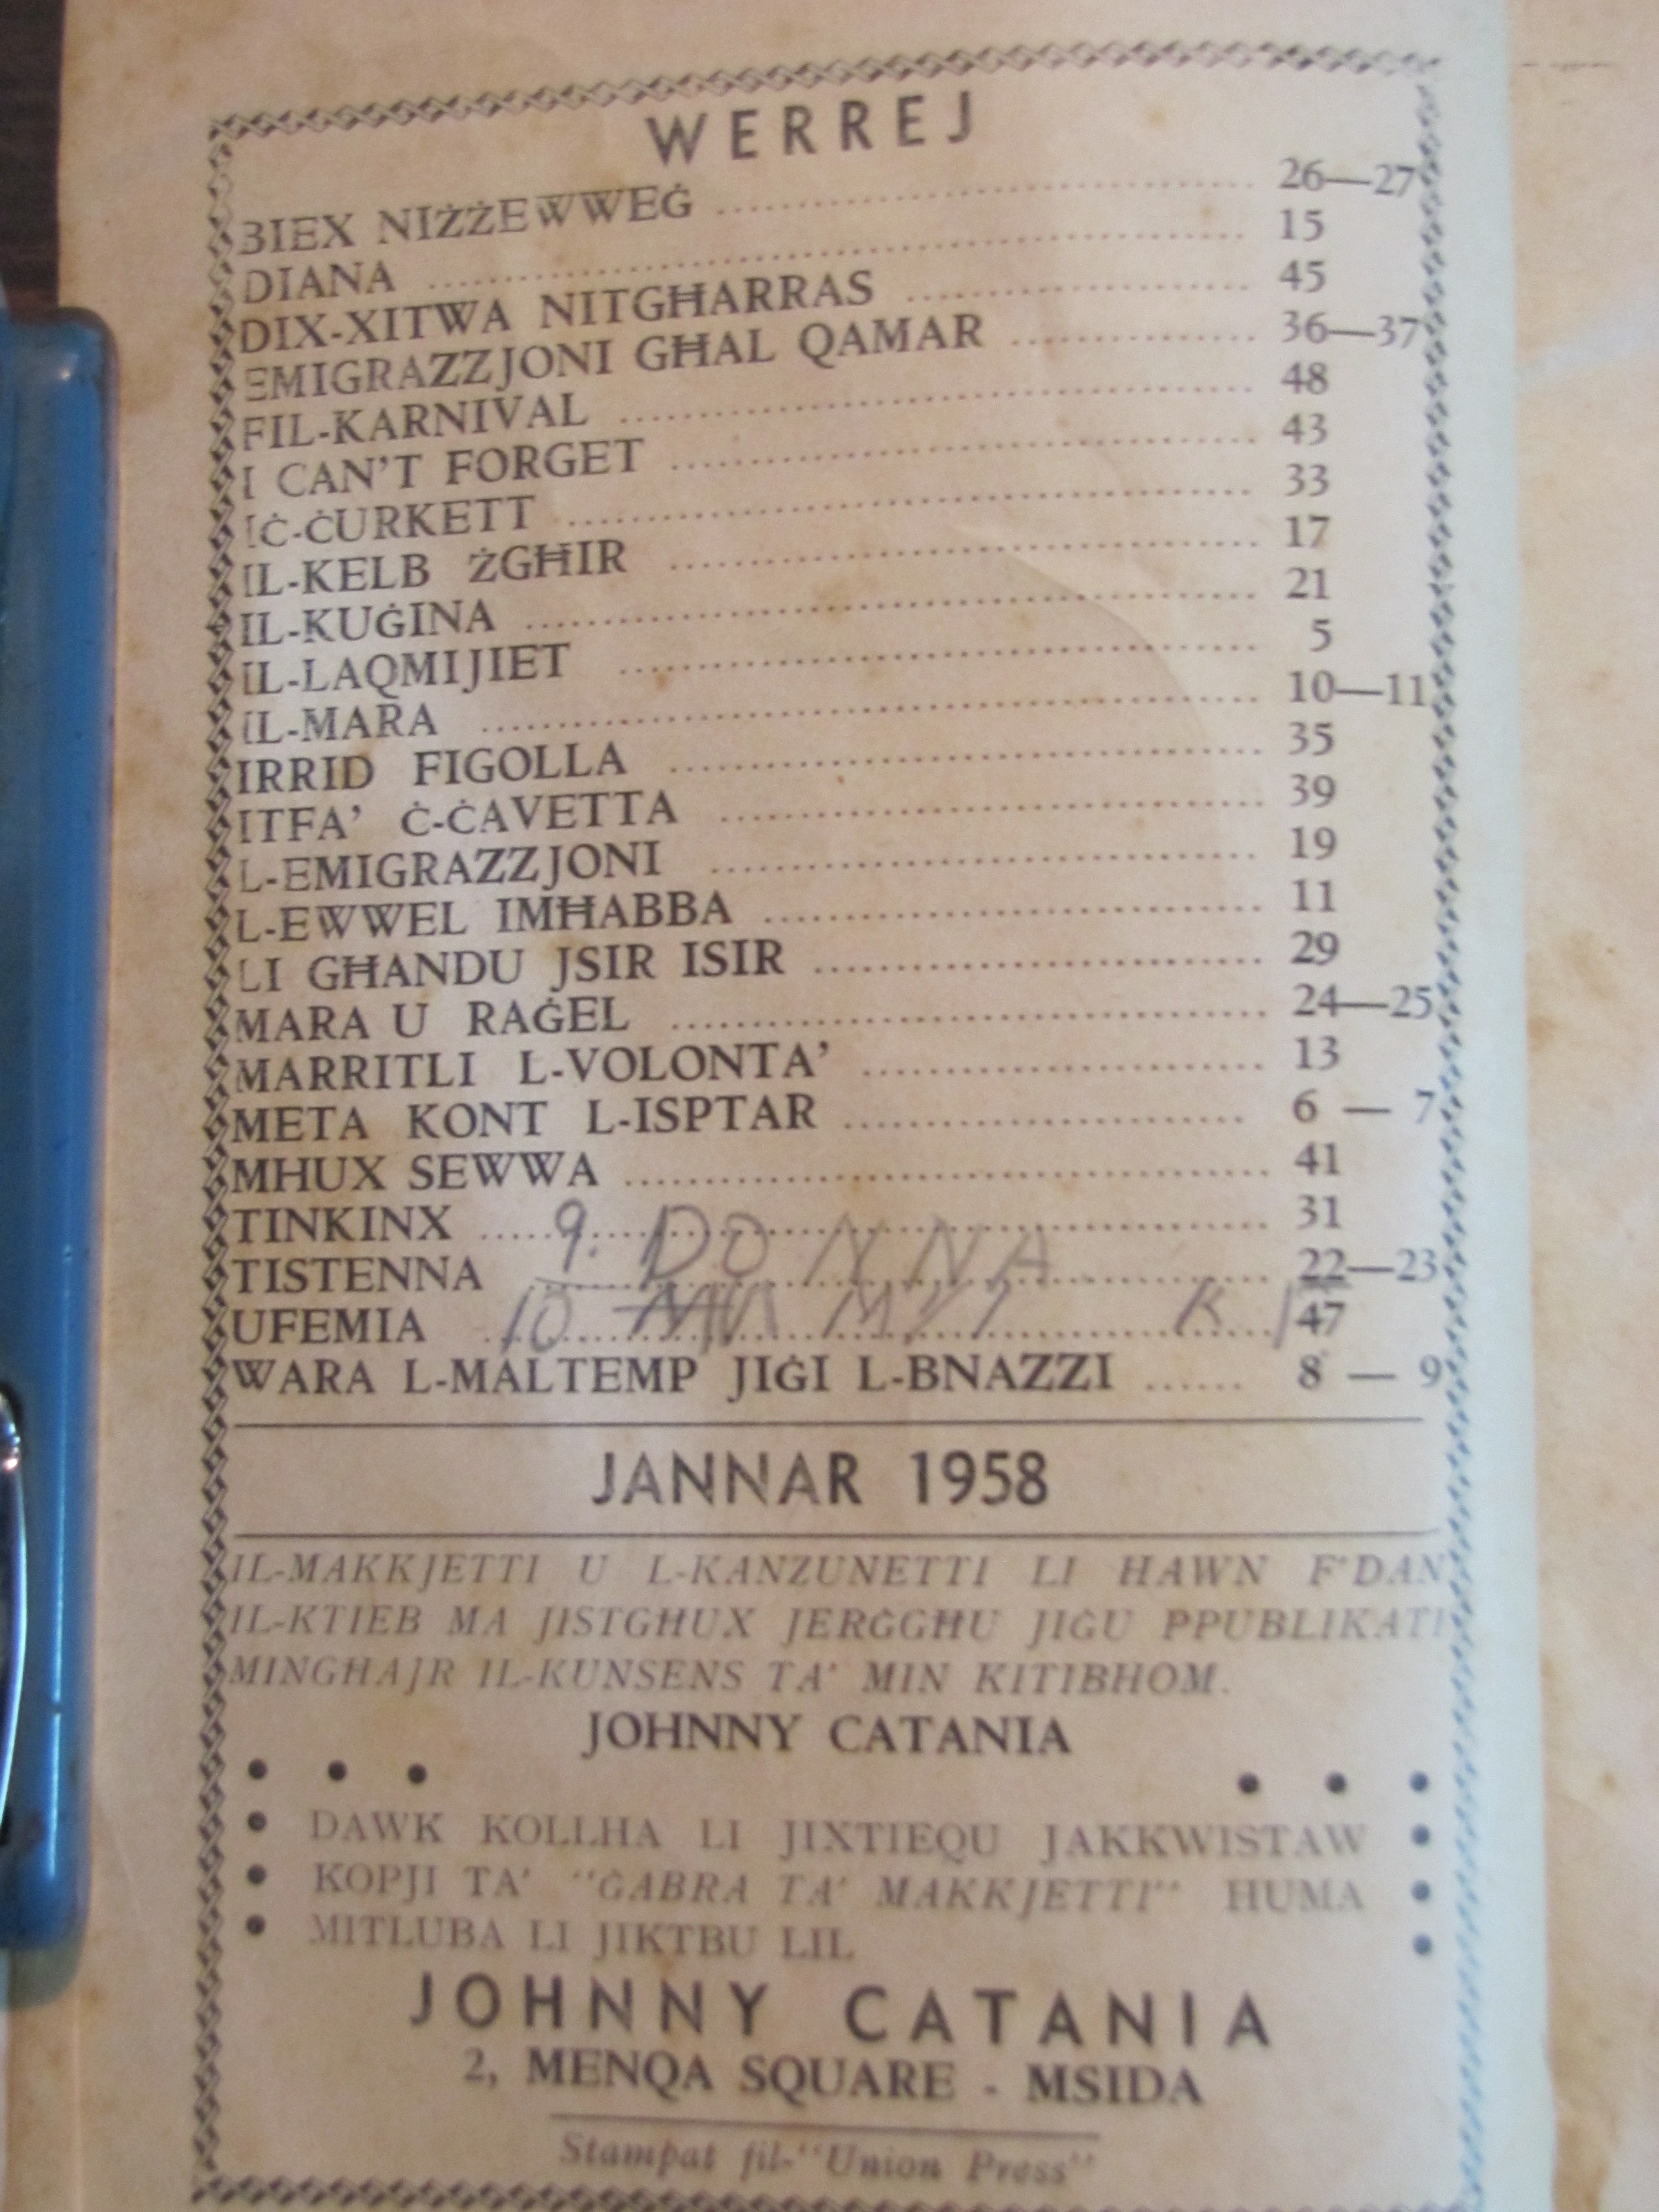 WERREJ
BIEX NIŻŻEWWEĠ ........ 26—27
DIANA ........ 15
DIX-XITWA NITGĦARRAS ........ 45
EMIGRAZZJONI GĦAL QAMAR ........ 36—37
FIL-KARNIVAL ........ 48
I CAN'T FORGET ........ 43
IĊ-ĊURKETT ........ 33
IL-KELB ŻGĦIR ........ 17
IL-KUĠINA ........ 21
IL-LAQMIJIET ........ 5
IL-MARA ........ 10—11
IRRID FIGOLLA ........ 35
ITFA' Ċ-ĊAVETTA ........ 39
L-EMIGRAZZJONI ........ 19
L-EWWEL IMĦABBA ........ 11
LI GĦANDU JSIR ISIR ........ 29
MARA U RAĠEL ........ 24—25
MARRITLI L-VOLONTA' ........ 13
META KONT L-ISPTAR ........ 6 — 7
MHUX SEWWA ........ 41
TINKINX ........ 31
9. DONNA
TISTENNA ........ 22—23
10
UFEMIA ........ 47
WARA L-MALTEMP JIĠI L-BNAZZI ...... 8 — 9
JANNAR 1958
IL-MAKKJETTI U L-KANZUNETTI LI HAWN F'DAN
IL-KTIEB MA JISTGĦUX JERĠGĦU JIĠU PPUBLIKATI
MINGĦAJR IL-KUNSENS TA' MIN KITIBHOM.
JOHNNY CATANIA
DAWK KOLLHA LI JIXTIEQU JAKKWISTAW
KOPJI TA' "ĠABRA TA' MAKKJETTI" HUMA
MITLUBA LI JIKTBU LIL
JOHNNY CATANIA
2, MENQA SQUARE - MSIDA
Stampat fil-"Union Press"